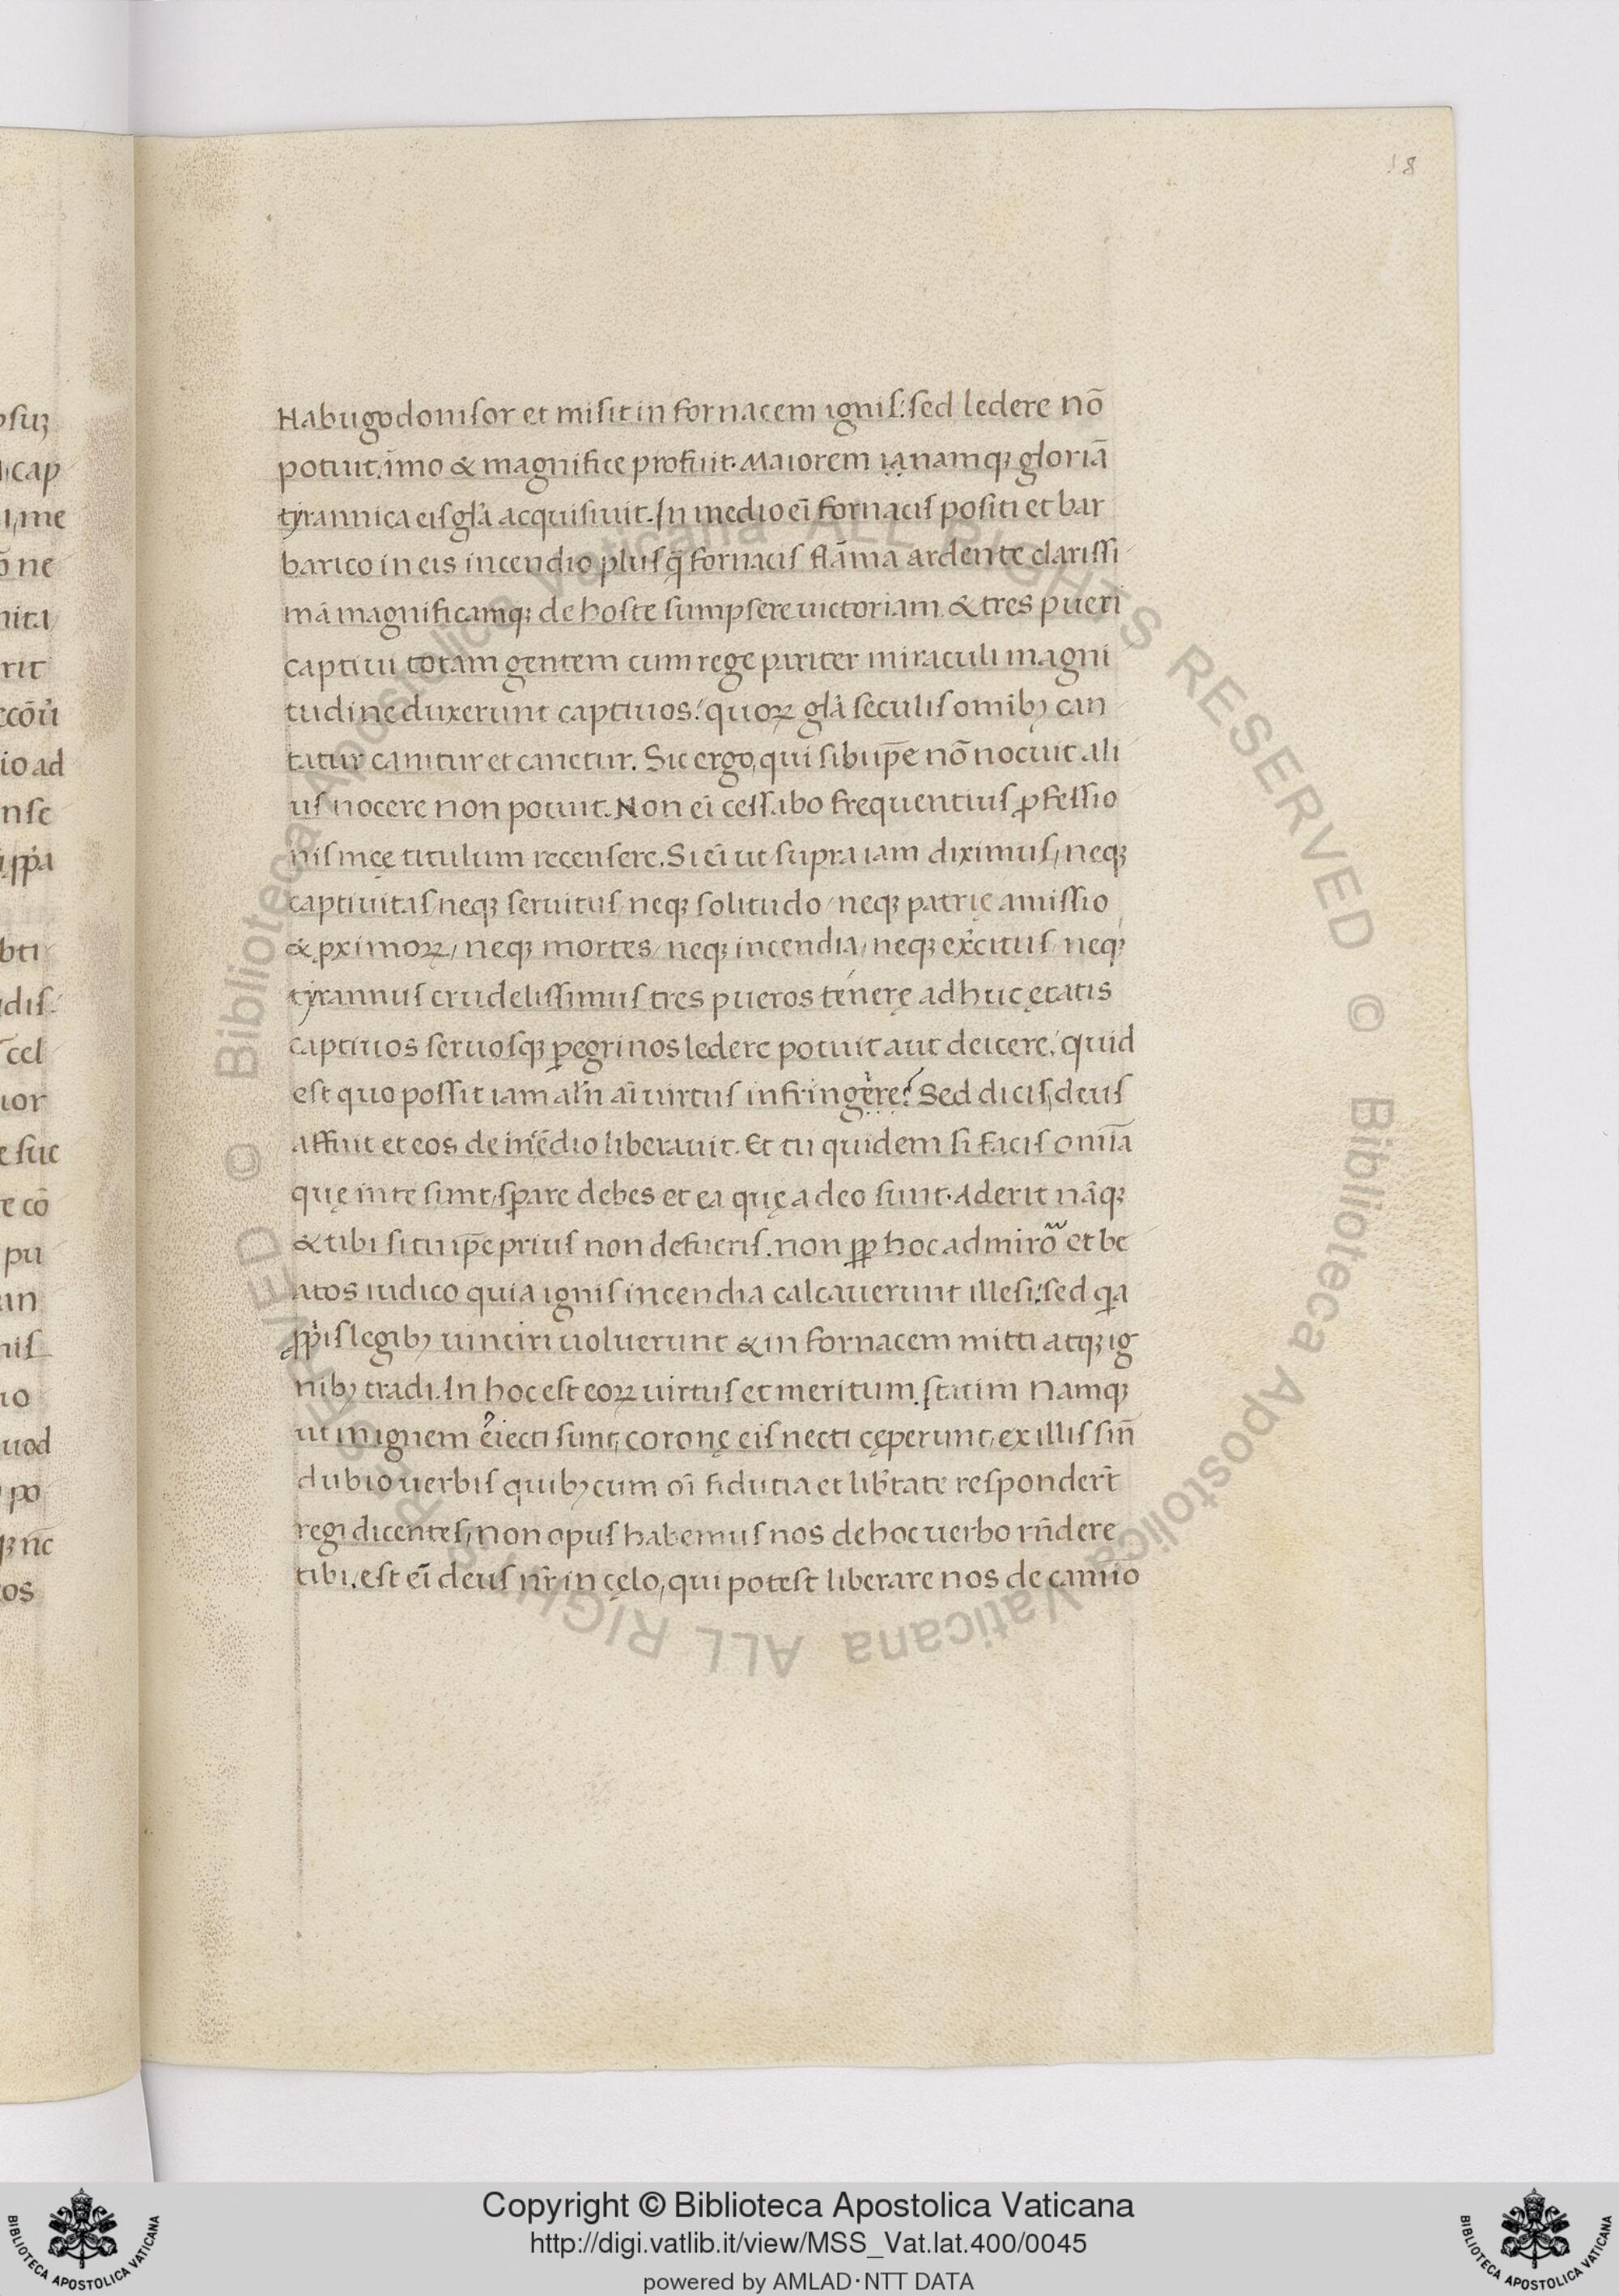 18
Nabugodonisor et misit in fornacem ignis: sed ledere nō
potuit. īmo & magnifice profuit. Maiorem ianamqꝫ gloriā
tyrannica eis gľa acquisiuit. In medio eī fornacis positi et bar
barico in eis incendio plusq̄ fornacis flāma ardente clarissi
mā magnificamqꝫ de hoste sumpsere uictoriam. & tres pueri
captiui totam gentem cum rege pariter miraculi magni
tudine duxerunt captiuos: quoꝝ gľa seculis omibꝫ can
tatur canitur et canetur. Sic ergo, qui sibiip̄e nō nocuit ali
us nocere non potuit. Non eī cessabo frequentius ꝓfessio
nis meę titulum recensere. Si eī ut supra iam diximus, neqꝫ
captiuitas, neqꝫ seruitus, neqꝫ solitudo, neqꝫ patrię amissio
& ꝓximoꝝ, neqꝫ mortes, neqꝫ incendia, neqꝫ exc̓itus, neqꝫ
tyrannus crudelissimus tres pueros tenerę adhuc ętatis
captiuos seruosqꝫ ꝑegrinos ledere potuit aut deicere: quid
est quo possit iam aľn aī uirtus infringere? Sed dicis, deus
affuit et eos de incēdio liberauit. Et tu quidem si facis omīa
quę in te sunt, sꝑare debes et ea quę a deo sunt. Aderit nāqꝫ
& tibi si tu ip̄e prius non defueris. non ꝓꝑ hoc admiror et be
atos iudico quia ignis incendia calcauerunt illesi: sed qa
ꝓp̓is legibꝫ uinciri uoluerunt & in fornacem mitti atqꝫ ig
nibꝫ tradi. In hoc est eoꝝ uirtus et meritum. statim Namqꝫ
ut in ignem eiecti sunt, coronę eis necti cęperunt, ex illis sin̄
dubio uerbis quibꝫ cum oī fidutia et lib̓tate respondert̄
regi dicentes, non opus habemus nos de hoc uerbo rn̄dere
tibi. est eī deus nr̄ in cęlo, qui potest liberare nos de camio
Copyright © Biblioteca Apostolica Vaticana
http://digi.vatlib.it/view/MSS_Vat.lat.400/0045
powered by AMLAD·NTT DATA
BIBLIOTECA APOSTOLICA VATICANA
BIBLIOTECA APOSTOLICA VATICANA